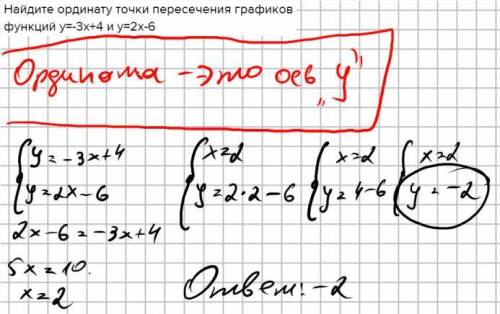 Найдите ординату точки пересечения графиков
функций y=-3x+4 и y=2x-6
Ордината - это ось "y"
y = -3x+4
y = 2x - 6
2x - 6 = -3x + 4
5x = 10.
x = 2
x = 2
y = 2·2 - 6
x = 2
y = 4 - 6
x = 2
y = -2
Ответ: -2